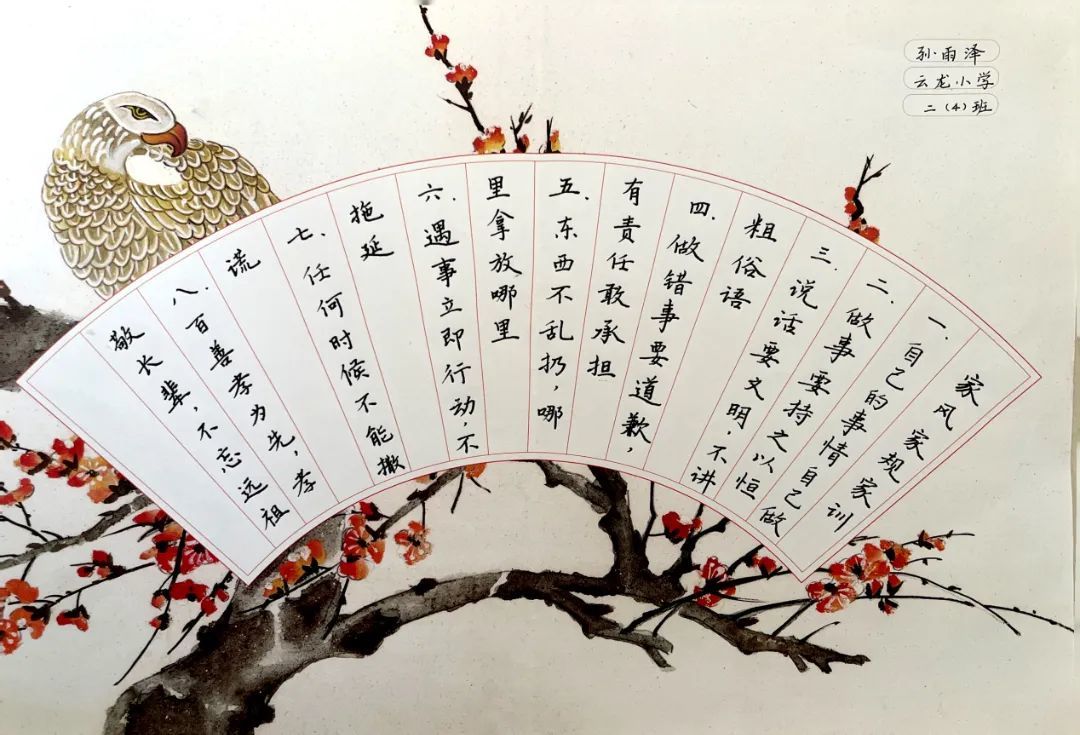 孙雨泽
云龙小学
二（4）班
家风家规家训
一．自己的事情自己做
二．做事要持之以恒
三．说话要文明，不讲
粗俗语
四．做错事要道歉，
有责任敢承担
五．东西不乱扔，哪
里拿放哪里
六．遇事立即行动，不
拖延
七．任何时候不能撒
谎
八．百善孝为先，孝
敬长辈，不忘远祖